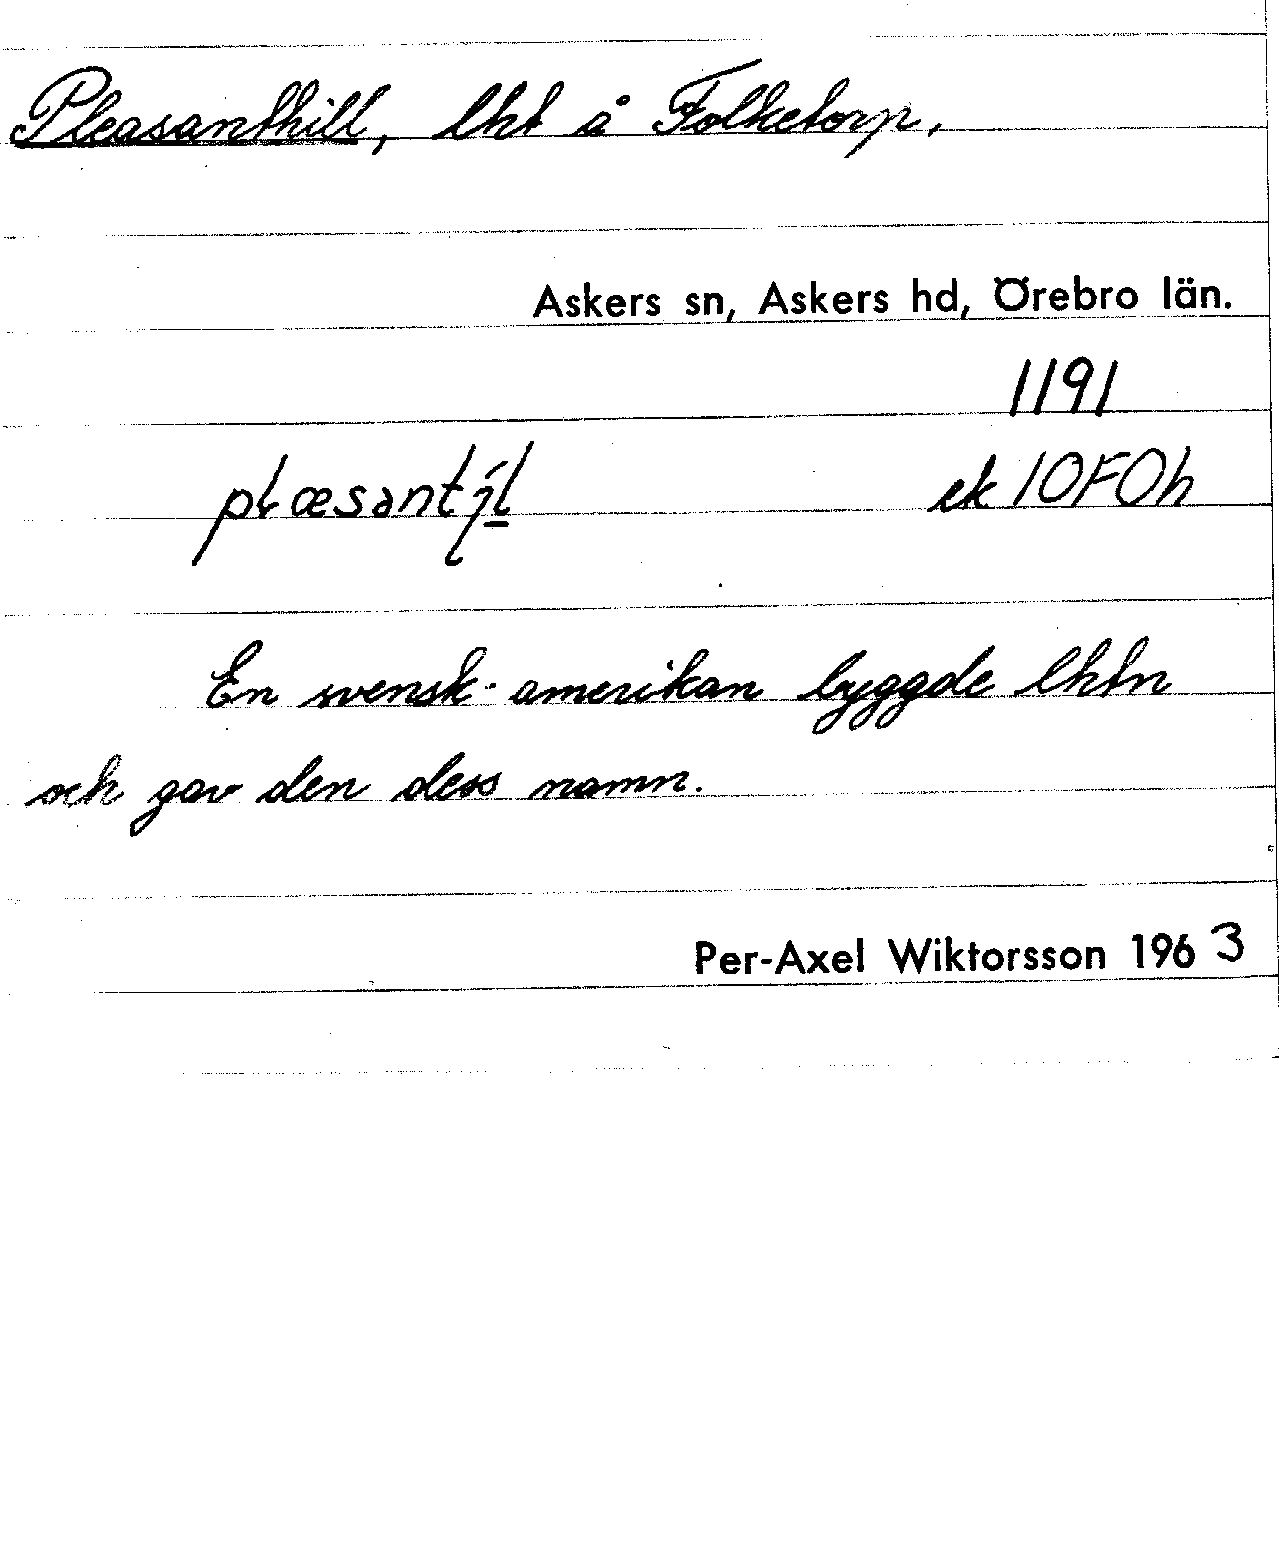 Pleasanthill, lht å Folketorp.
Askers sn, Askers hd, Örebro län.
1191
ek 10F0h
En svensk-amerikan byggde lhtn
och gav den dess namn.
Per-Axel Wiktorsson 1963